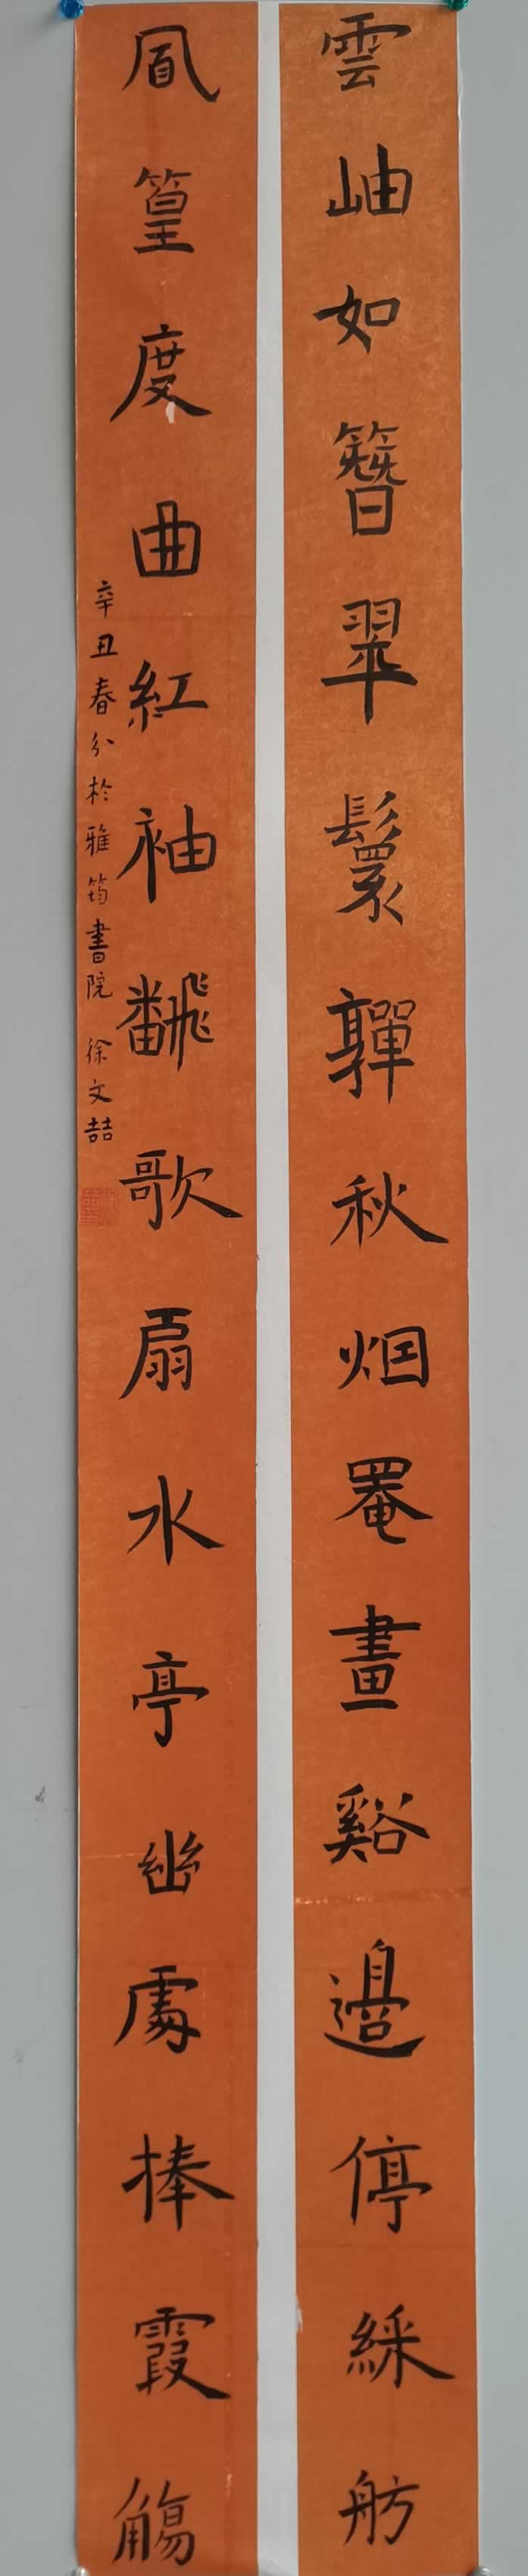 雲岫如簪翠鬟嚲秋烟罨畫谿邊停綵舫
鳳篁度曲紅袖飜歌扇水亭幽處捧霞觴
辛丑春分於雅筠書院 徐文喆